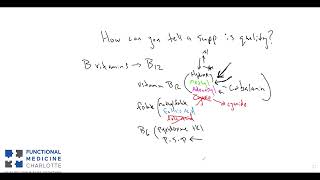 How can you tell a supp is quality?
B vitamins → B12
Hydroxy
Methyl
Adenosyl
Cyano
vitamin B12
Cobalamin
cyanide
folate
folic acid
B6
P-5-P ←
FUNCTIONAL
MEDICINE
CHARLOTTE